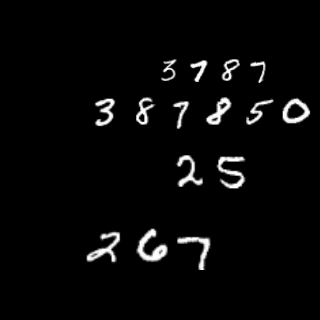 3787
387850
25
267